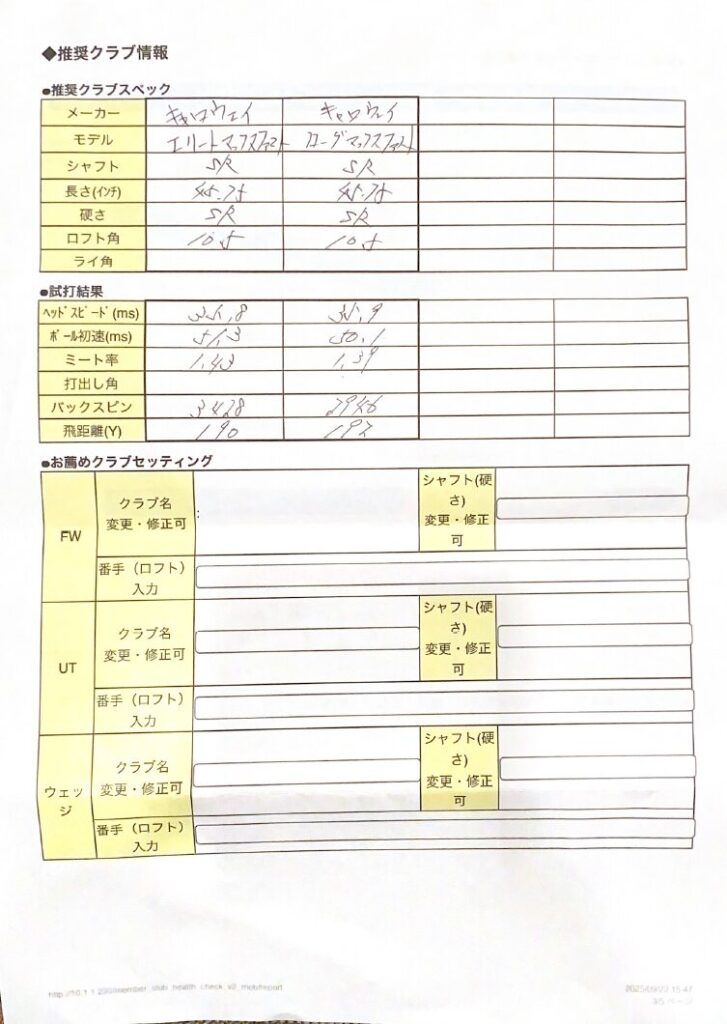 ◆推奨クラブ情報
●推奨クラブスペック
メーカー キャロウェイ キャロウェイ
モデル エリートマックスファスト ローグマックスファスト
シャフト SR SR
長さ(インチ) 45.75 45.75
硬さ SR SR
ロフト角 10.5 10.5
ライ角
●試打結果
ヘッドスピード(ms) 35.8 35.9
ボール初速(ms) 51.3 50.1
ミート率 1.43 1.39
打出し角
バックスピン 3428 2946
飛距離(Y) 190 192
●お薦めクラブセッティング
FW
クラブ名
変更・修正可
シャフト(硬
さ)
変更・修正
可
番手（ロフト）
入力
UT
クラブ名
変更・修正可
シャフト(硬
さ)
変更・修正
可
番手（ロフト）
入力
ウェッ
ジ
クラブ名
変更・修正可
シャフト(硬
さ)
変更・修正
可
番手（ロフト）
入力
2025/09/22 15:47
3/5 ページ